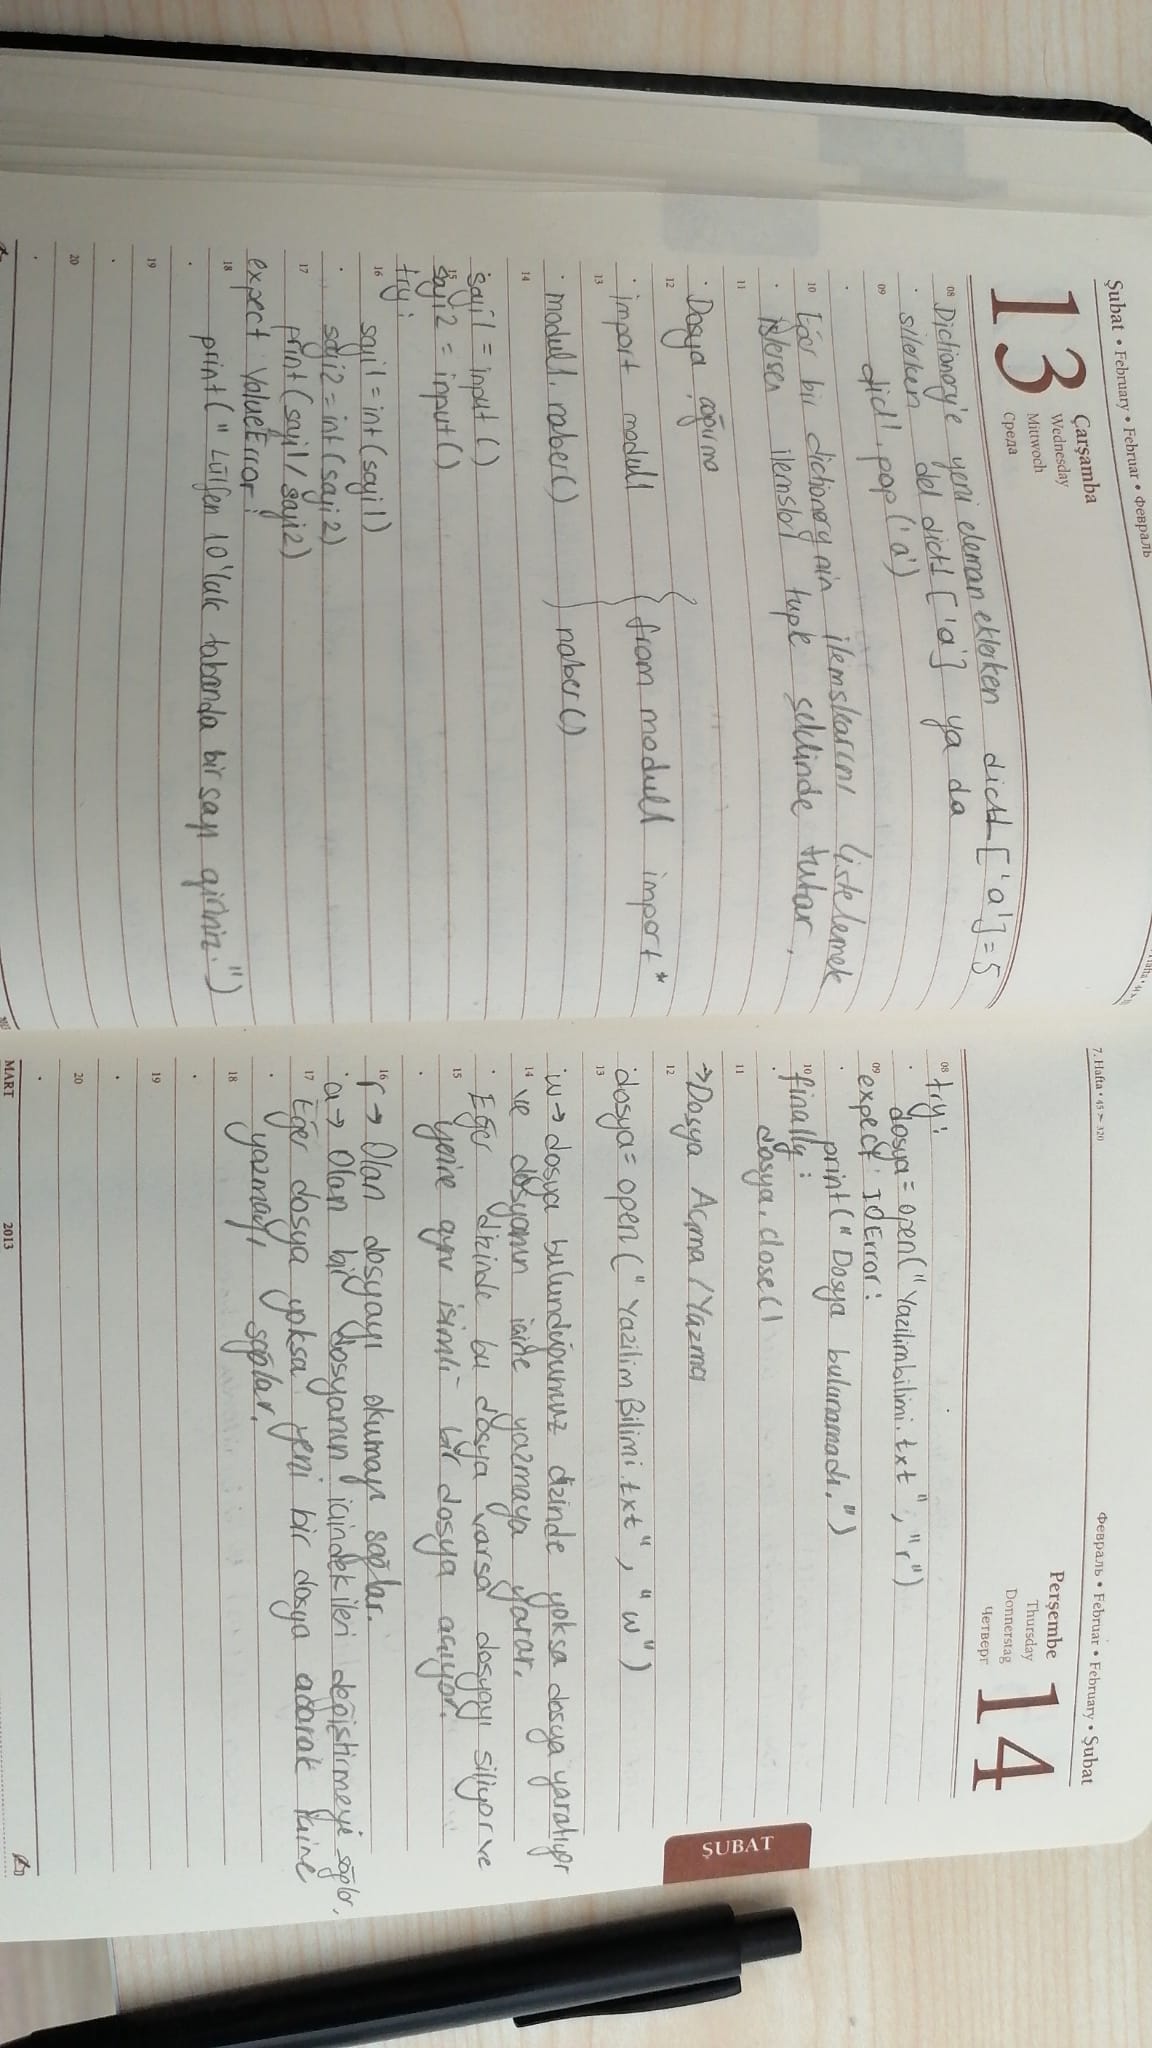 Şubat • February • Februar • Февраль
13
Çarşamba
Wednesday
Mittwoch
Среда
08 Dictionary'e yeni eleman eklerken dict1['a']=5
silerken del dict1['a'] ya da
09 dict1.pop('a')
10 Eğer bir dictionary nin itemslarını listelemek
isterse itemslar tuple seklinde tutar.
11
Dosya çağırma
12
import modul1 from modul1 import*
13
modul1.naber() naber()
14
sayi1 = input()
15 sayi2 = input()
try:
16 sayi1 = int(sayi1)
sayi2 = int(sayi2)
17 print(sayi1/sayi2)
expect ValueError:
18 print("Lütfen 10'luk tabanda bir sayı giriniz.")
19
20
7. Hafta • 45 > 320
Февраль • Februar • February • Şubat
Perşembe
Thursday
Donnerstag
Четверг
14
08 try:
dosya = open("Yazilimbilimi.txt", "r")
09 expect IOError:
print("Dosya bulunamadı.")
10 finally:
dosya.close()
11
→Dosya Açma/Yazma
12
dosya = open("YazilimBilimi.txt", "w")
13
w→ dosya bulunduğumuz dizinde yoksa dosya yaratıyor
14 ve dosyanın içine yazmaya yarar.
Eğer dizinde bu dosya varsa dosyayı siliyor ve
15 yerine aynı isimli bir dosya açıyor.
16 r→ Olan dosyayı okumayı sağlar.
a→ Olan bir dosyanın içindekileri değiştirmeyi sağlar.
17 Eğer dosya yoksa yeni bir dosya açarak içine
yazmayı sağlar.
18
19
20
MART 2013
ŞUBAT